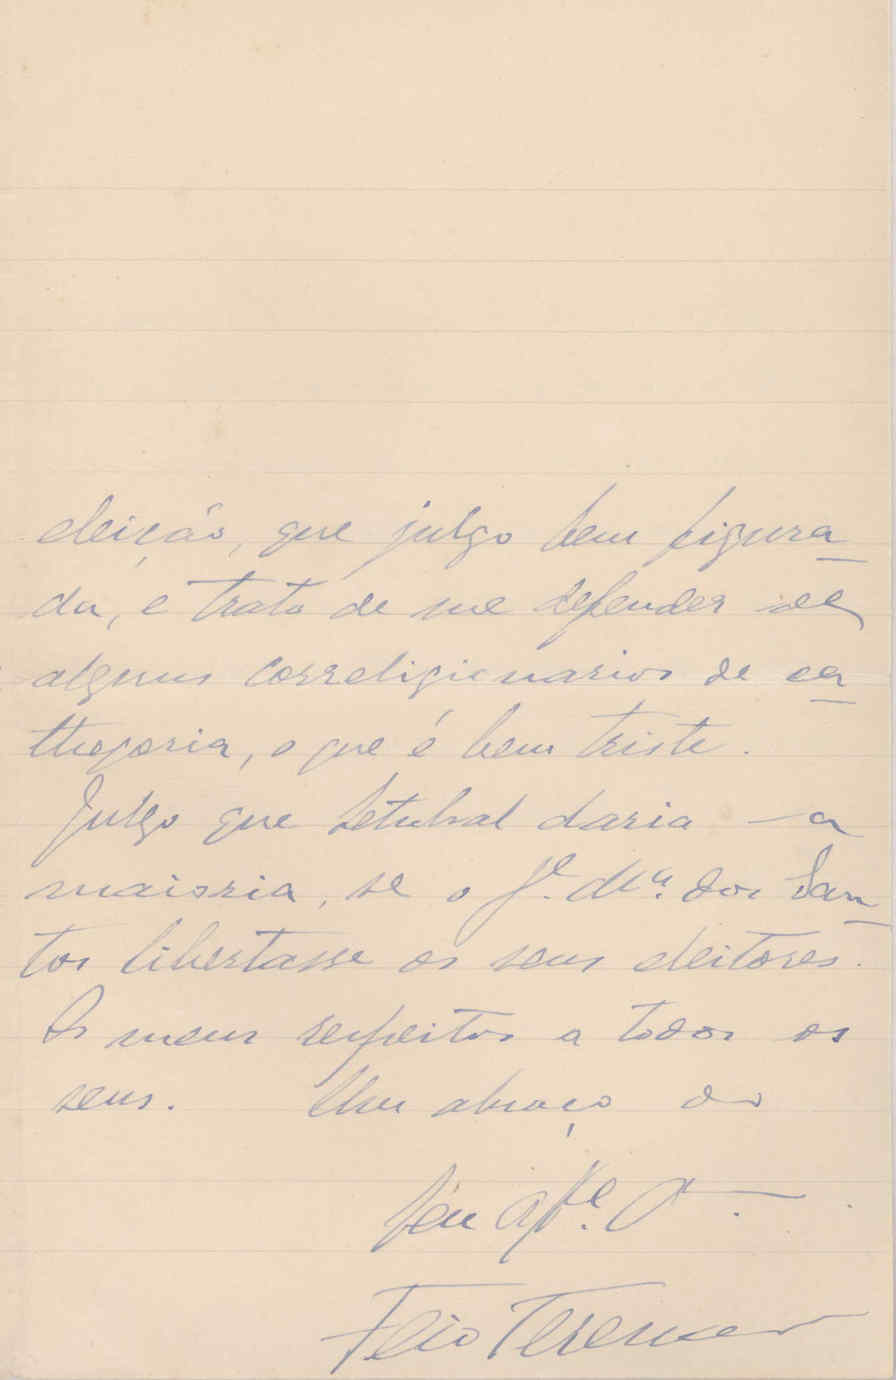 eleição, que julgo bem figura-
da, e trato de me defender de
alguns correligionarios de ca-
thegoria, o que é bem triste.
Julgo que Setubal daria a
maioria, se o Je. dos San-
tos libertasse os seus eleitores.
Os meus respeitos a todos os
seus. Um abraço do
Seu
Feio Terenas